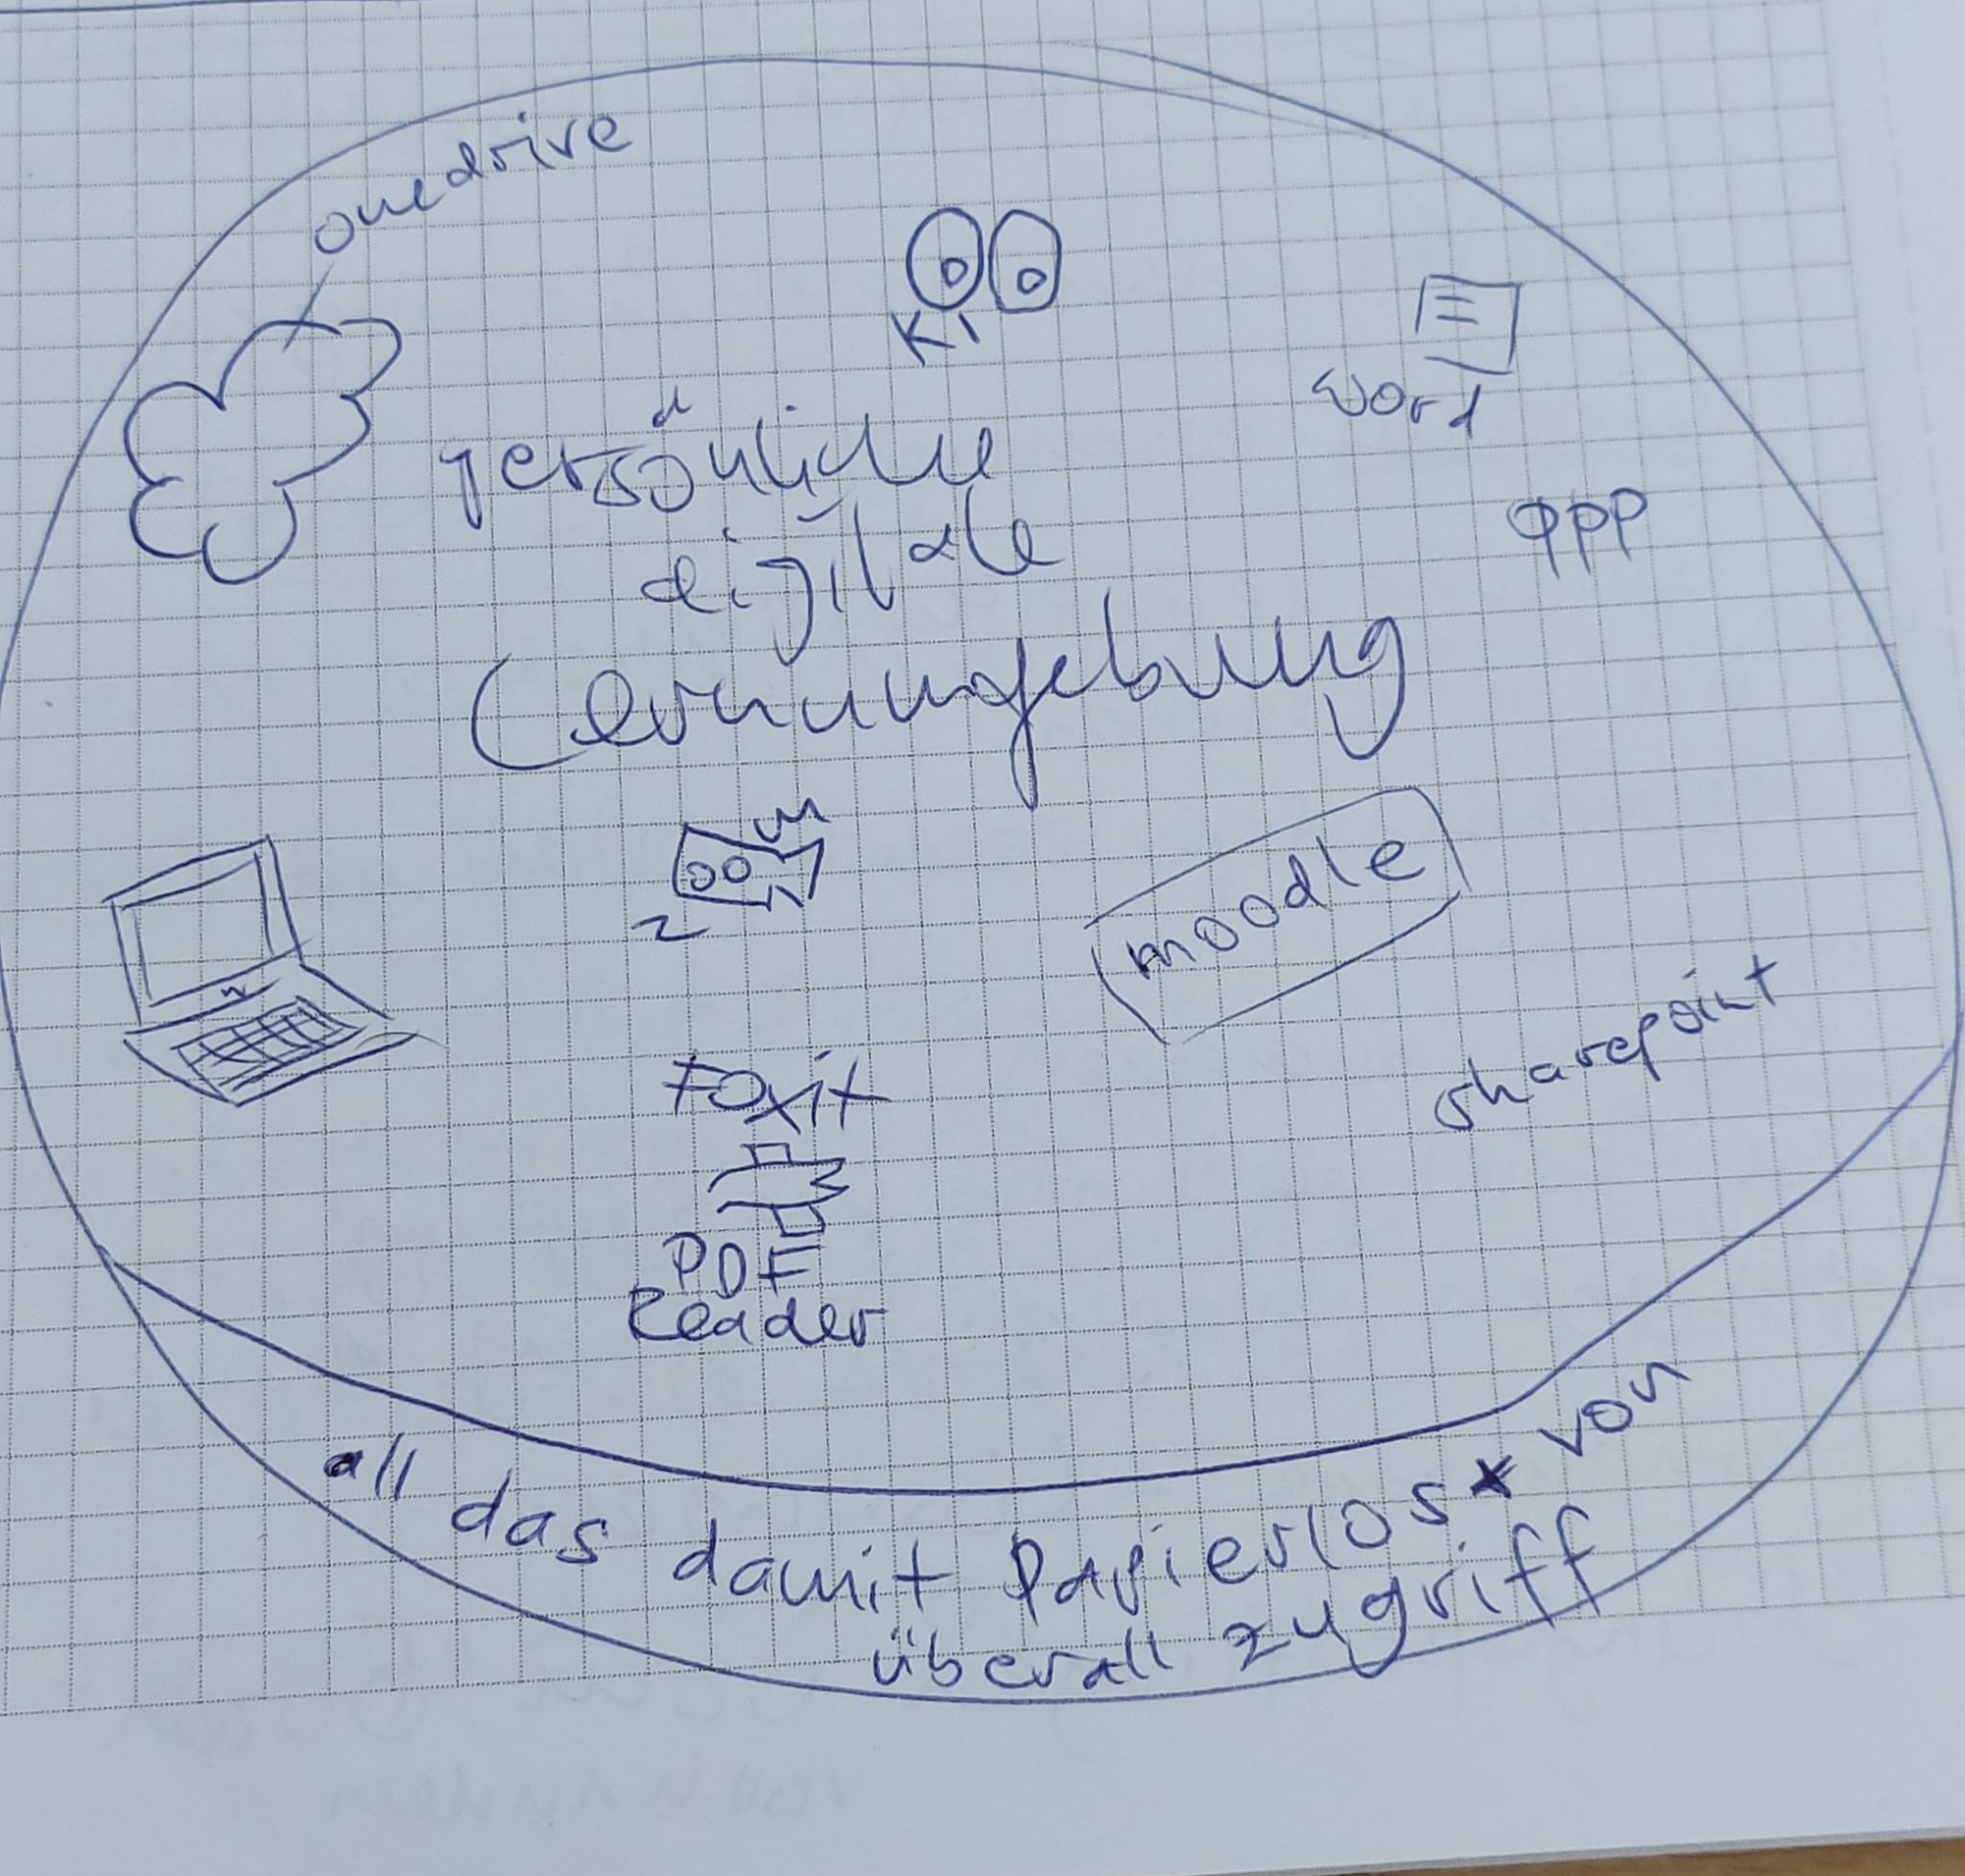 onedrive
KI
Word
persönliche
digitale
Lernumgebung
PPP
moodle
sharepoint
Foxit
PDF
Reader
all das damit Papierlos * von
überall zugriff